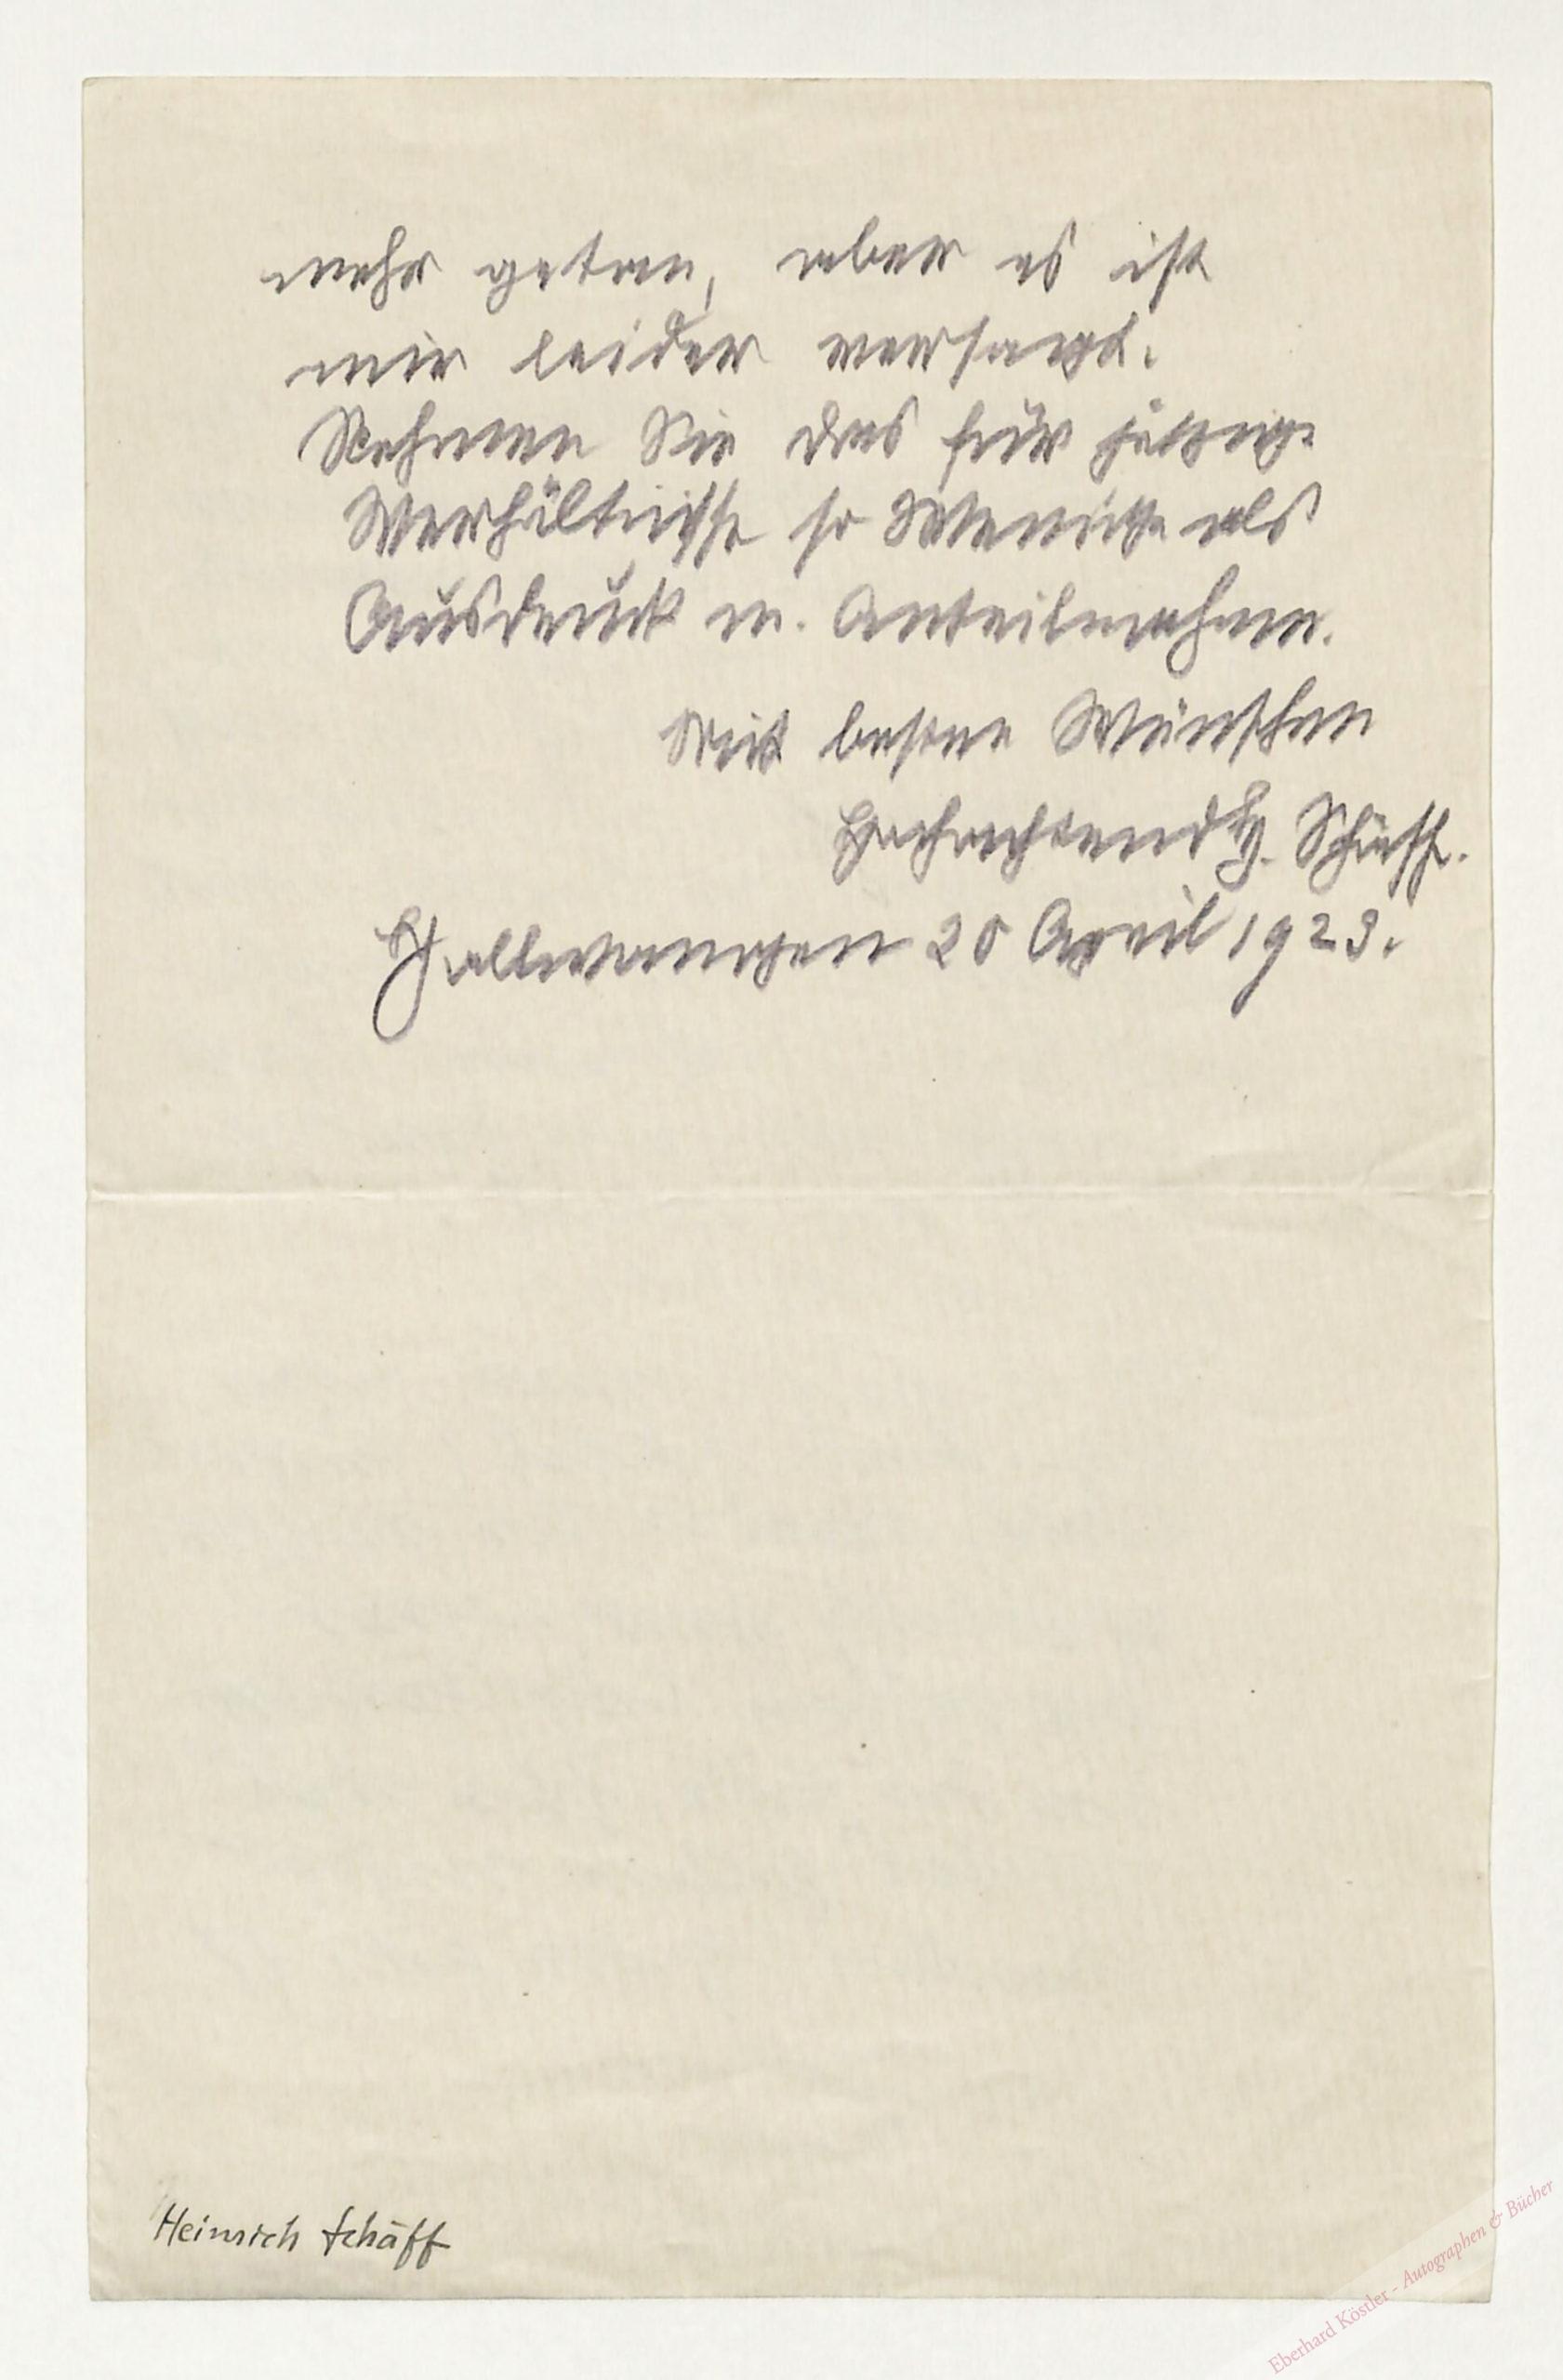 mehr getan, aber es ist
mir leider versagt.
Nehmen Sie das für jetzige
Verhältnisse so Wenige als
Ausdruck m. Anteilnahme.
Mit besten Wünschen
Hochachtend H. Schäff.
Hallwangen 20 April 1923.
Heinrich Schäff
Eberhard Köstler - Autographen & Bücher